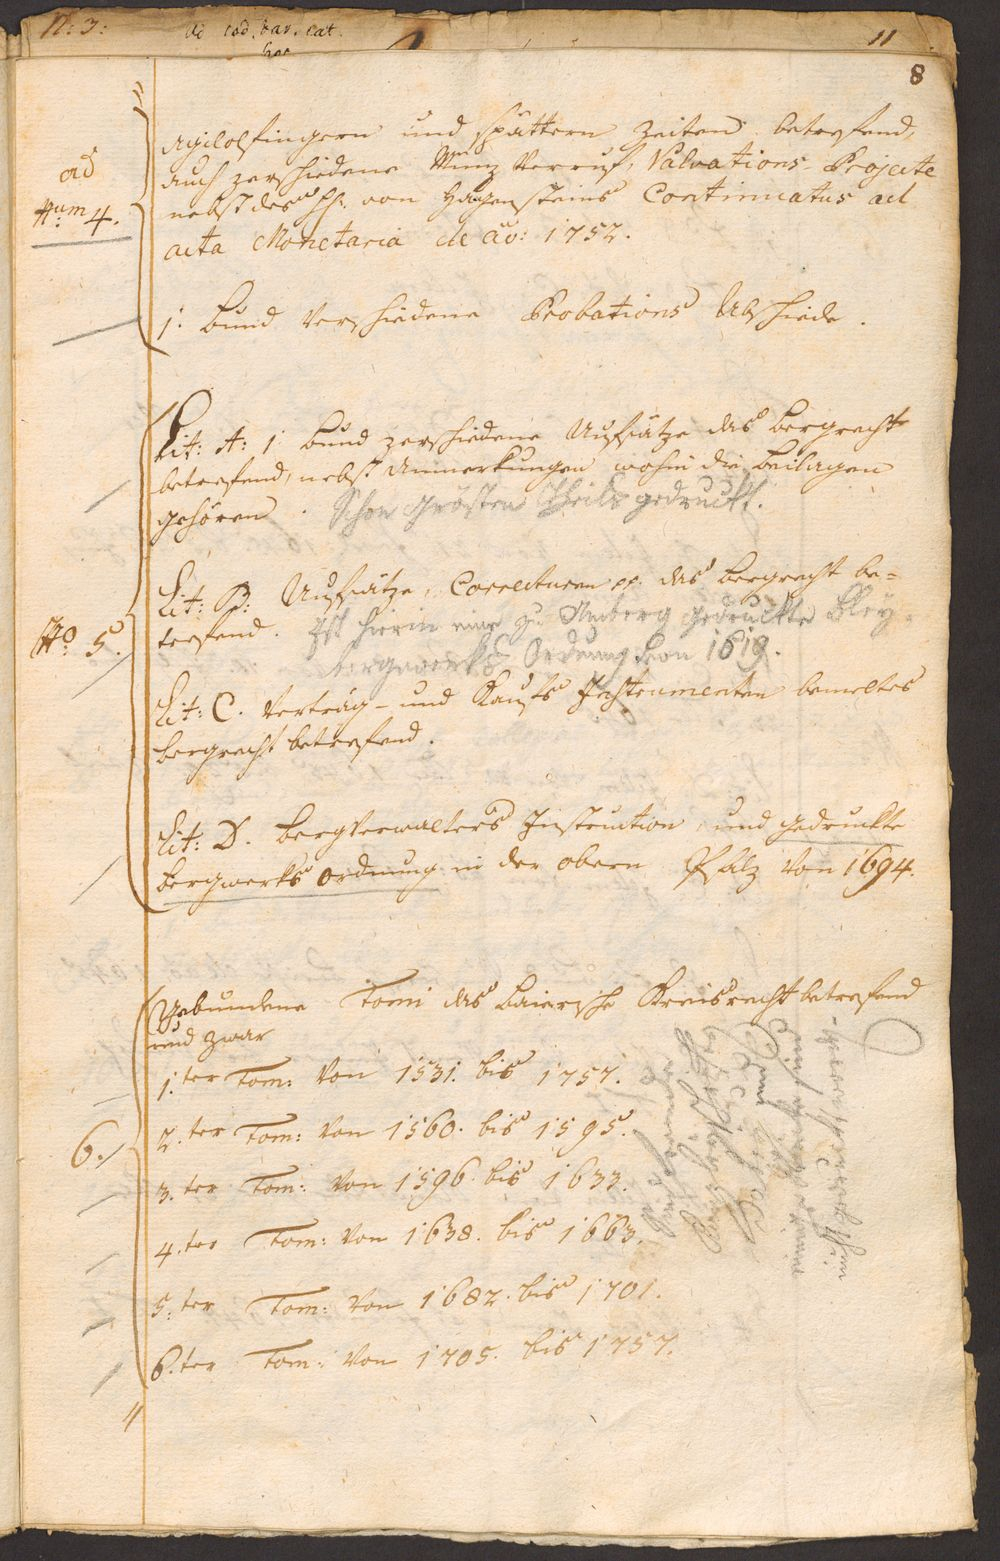 N: 3:
ad cod. bav. cat.
11
8
ad
Num 4.
Agilolfingern und spättern Zeiten betreffend,
auch verschiedene Münz Verruf, Valvations-Projecte
nebst des H. von Hagensteins Continuatus ad
acta Monetaria de ao: 1752.
1. Bund verschiedene Probations Abschiede.
No 5.
Lit: A: 1 Bund verschiedene Aufsätze das Bergrecht
betreffend, nebst Anmerkungen wohin die Beilagen
gehören. Schon grösten Theils gedruckt.
Lit: B: Aufsätze, Correcturen pp. das Bergrecht be-
treffend. Ist hierin eine zu Amberg gedruckte Bley-
bergwerks Ordnung von 1619.
Lit: C. Verträg- und Kaufs Instrumenten bemeltes
Bergrecht betreffend.
Lit: D. Bergverwalters Instruction, und gedruckte
Bergwerks Ordnung in der obern Pfalz von 1694.
6.
Gebundene Tomi das Baierische Kreisrecht betreffend
und zwar
1.ter Tom: von 1531. bis 1757.
2.ter Tom: von 1560. bis 1595.
3.ter Tom: von 1596. bis 1633.
4.ter Tom: von 1638. bis 1663.
5.ter Tom: von 1682. bis 1701.
6.ter Tom: von 1705. bis 1757.